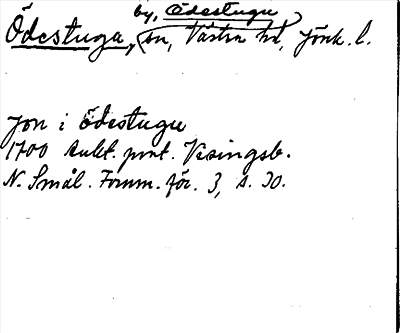 by, Ödestugu
Ödestuga, sn, Västra hd, Jönk. l.
Jon i Ödestugu
1700 Aukt. prot. Visingsb.
N. Smål. Fornm. för. 3, s. 30.